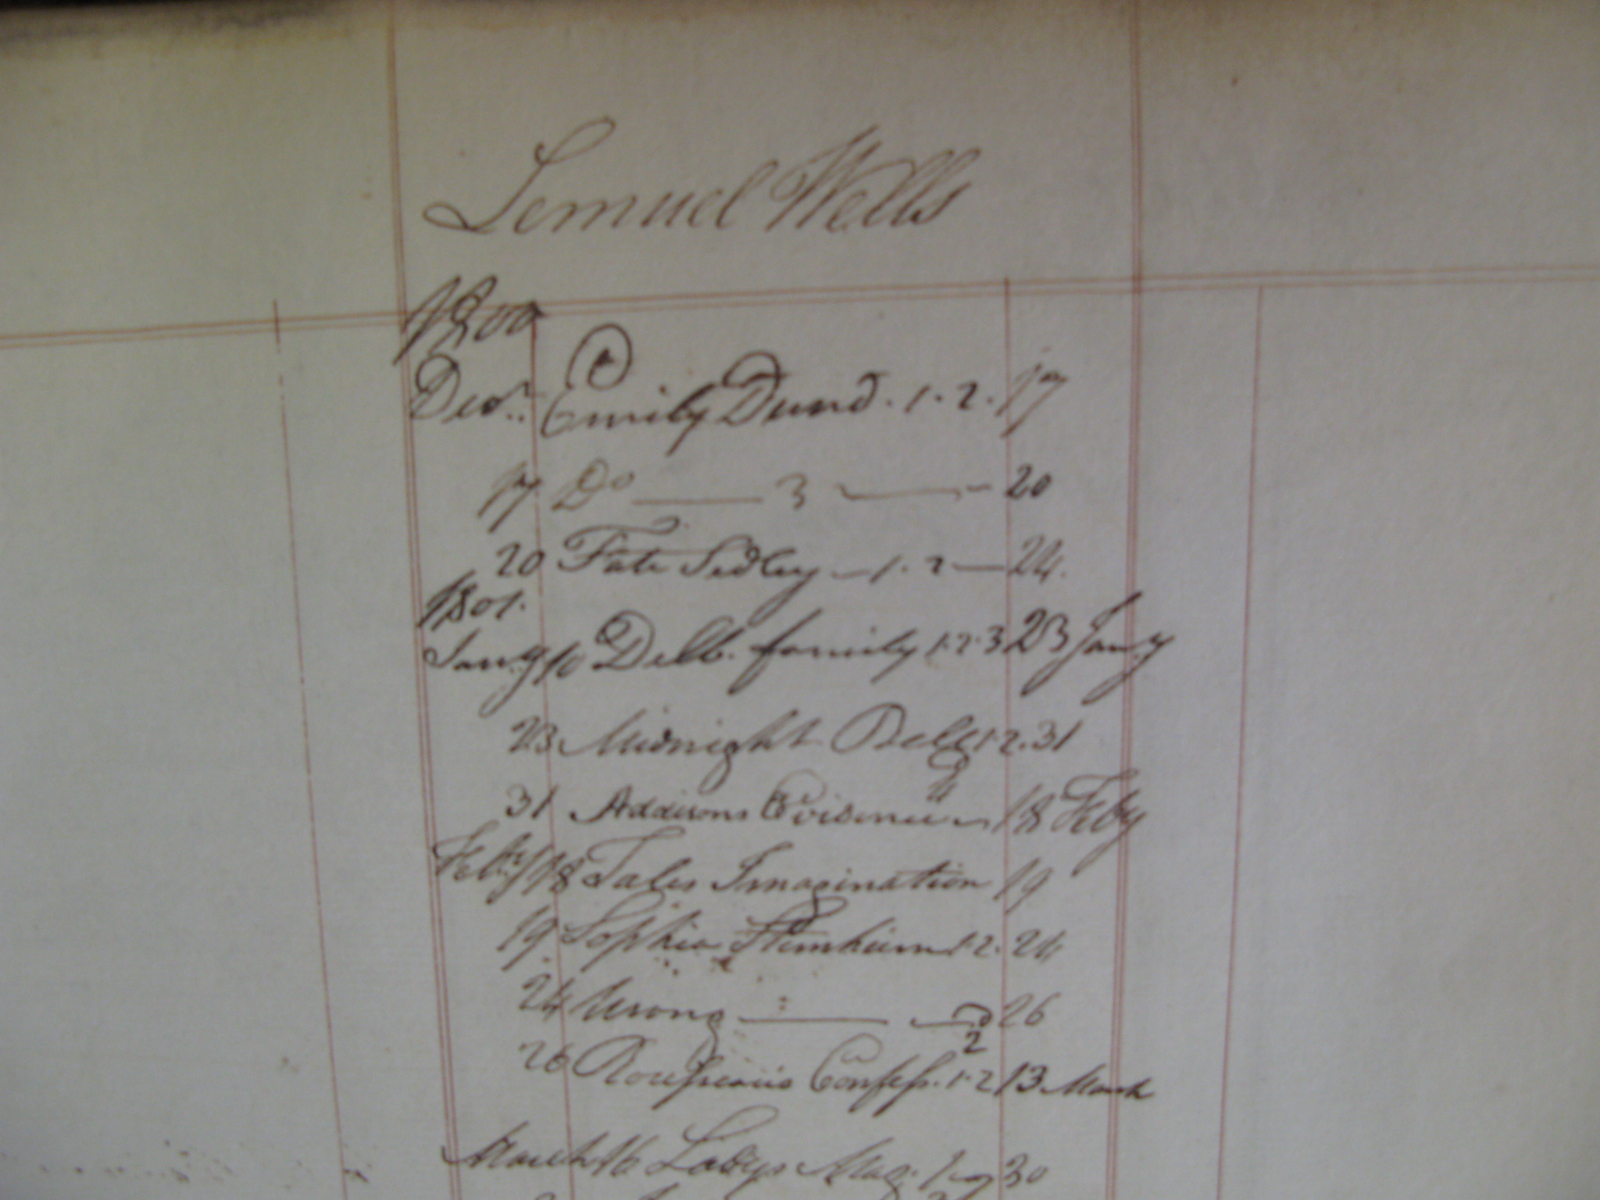 Lemuel Wells
1800
Decr. Emily Dund. 1. 2. 17
17 Do — 3 — 20
20 Fate Sedley — 1. 2 — 24.
1801.
Jany 10 Delb. family 1. 2. 3 23 Jany
23 Midnight Bell 1. 2. 31
31 Addisons Evidence 18 Feby
Feby 18 Tales Imagination 19
19 Sophia Sternheim 1. 2. 24
24 Wrong — 26
26 Rousseaus Confess. 1. 2 13 March
March 16 Ladys Mag. 30